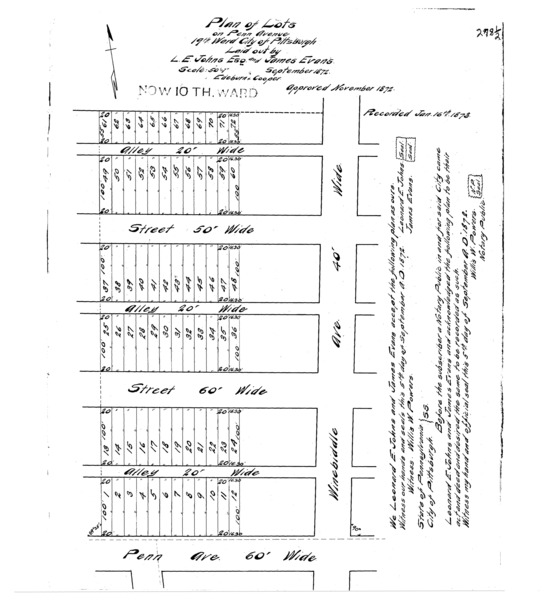 Plan of Lots
on Penn Avenue
19th Ward City of Pittsburgh
Laid out by
L.E Johns Esq and James Evans.
Scale: 50' September 1872.
Edeburn & Cooper
Approved November 1872.
278½
NOW 10 TH. WARD
Recorded Jan. 16th 1873.
20 61 62 63 64 65 66 67 68 69 70 71 72
Alley 20' Wide
100 49 50 51 52 53 54 55 56 57 58 59 60 100
20 20
Street 50' Wide
20 20
100 37 38 39 40 41 42 43 44 45 46 47 48 100
20 20
Alley 20' Wide
20 20
100 25 26 27 28 29 30 31 32 33 34 35 36 100
20 20
Street 60' Wide
20 20
100 13 14 15 16 17 18 19 20 21 22 23 24 100
Alley 20' Wide
100 1 2 3 4 5 6 7 8 9 10 11 12 100
20 20
Penn Ave. 60' Wide
Winebiddle Ave. 40' Wide
We Leonard E Johns and James Evans accept the following plan as ours.
Witness our hands and seals this 5th day of September A.D. 1872
Witness Willis W Powers.
Leonard E Johns Seal
James Evans. Seal
State of Pennsylvania
City of Pittsburgh. } SS.
Before the subscriber a Notary Public in and for said City came
Leonard E Johns and James Evans and acknowledged the following plan to be their
act and deed and desired the same to be recorded as such.
Witness my hand and official seal this 5th day of September A.D. 1872.
Willis W Powers.
Notary Public
Seal